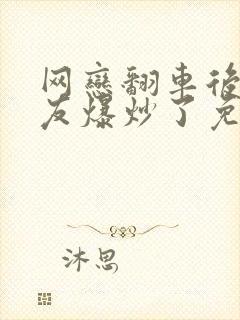 网戀翻車後
友爆炒了免
沐思